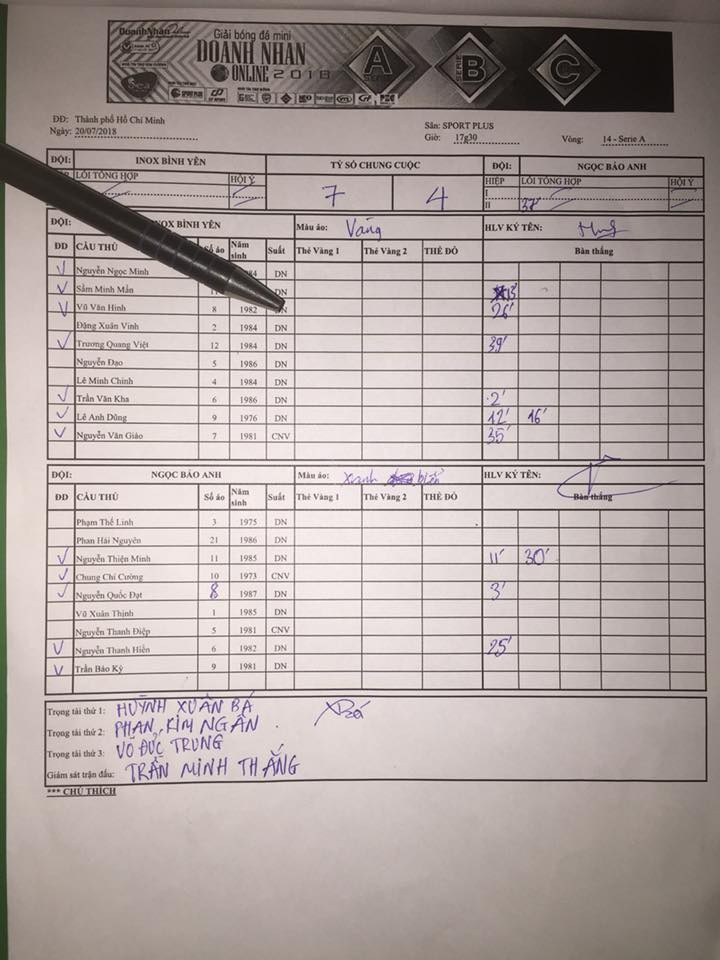 DoanhNhan
Giải bóng đá mini
DOANH NHAN
ONLINE 2018
A
SERIE B
C
Sea
SPORT PLUS
ĐĐ: Thành phố Hồ Chí Minh
Ngày: 20/07/2018
Sân: SPORT PLUS
Giờ: 17g30 Vòng: 14 - Serie A
ĐỘI: INOX BÌNH YÊN TỶ SỐ CHUNG CUỘC ĐỘI: NGỌC BẢO ANH
LỖI TỔNG HỢP HỘI Ý 7 4 HIỆP LỖI TỔNG HỢP HỘI Ý
I
II 37'
ĐỘI: INOX BÌNH YÊN Màu áo: Vàng HLV KÝ TÊN:
ĐD CẦU THỦ Số áo Năm sinh Suất Thẻ Vàng 1 Thẻ Vàng 2 THẺ ĐỎ Bàn thắng
Nguyễn Ngọc Minh DN
Sầm Minh Mẫn DN 13'
Vũ Văn Hinh 8 1982 26'
Đặng Xuân Vinh 2 1984 DN
Trương Quang Việt 12 1984 DN 39'
Nguyễn Đạo 5 1986 DN
Lê Minh Chinh 4 1984 DN
Trần Văn Kha 6 1986 DN 2'
Lê Anh Dũng 9 1976 DN 12' 16'
Nguyễn Văn Giáo 7 1981 CNV 35'
ĐỘI: NGỌC BẢO ANH Màu áo: Xanh biển HLV KÝ TÊN:
ĐD CẦU THỦ Số áo Năm sinh Suất Thẻ Vàng 1 Thẻ Vàng 2 THẺ ĐỎ Bàn thắng
Phạm Thế Linh 3 1975 DN
Phan Hải Nguyên 21 1986 DN
Nguyễn Thiện Minh 11 1985 DN 11' 30'
Chung Chí Cường 10 1973 CNV
Nguyễn Quốc Đạt 8 1987 DN 3'
Vũ Xuân Thịnh 1 1985 DN
Nguyễn Thanh Điệp 5 1981 CNV
Nguyễn Thanh Hiền 6 1982 DN 25'
Trần Bảo Kỳ 9 1981 DN
Trọng tài thứ 1: HUỲNH XUÂN BÁ
Trọng tài thứ 2: PHAN KIM NGÂN
Trọng tài thứ 3: VÕ ĐỨC TRUNG
Giám sát trận đấu: TRẦN MINH THẮNG
*** CHÚ THÍCH